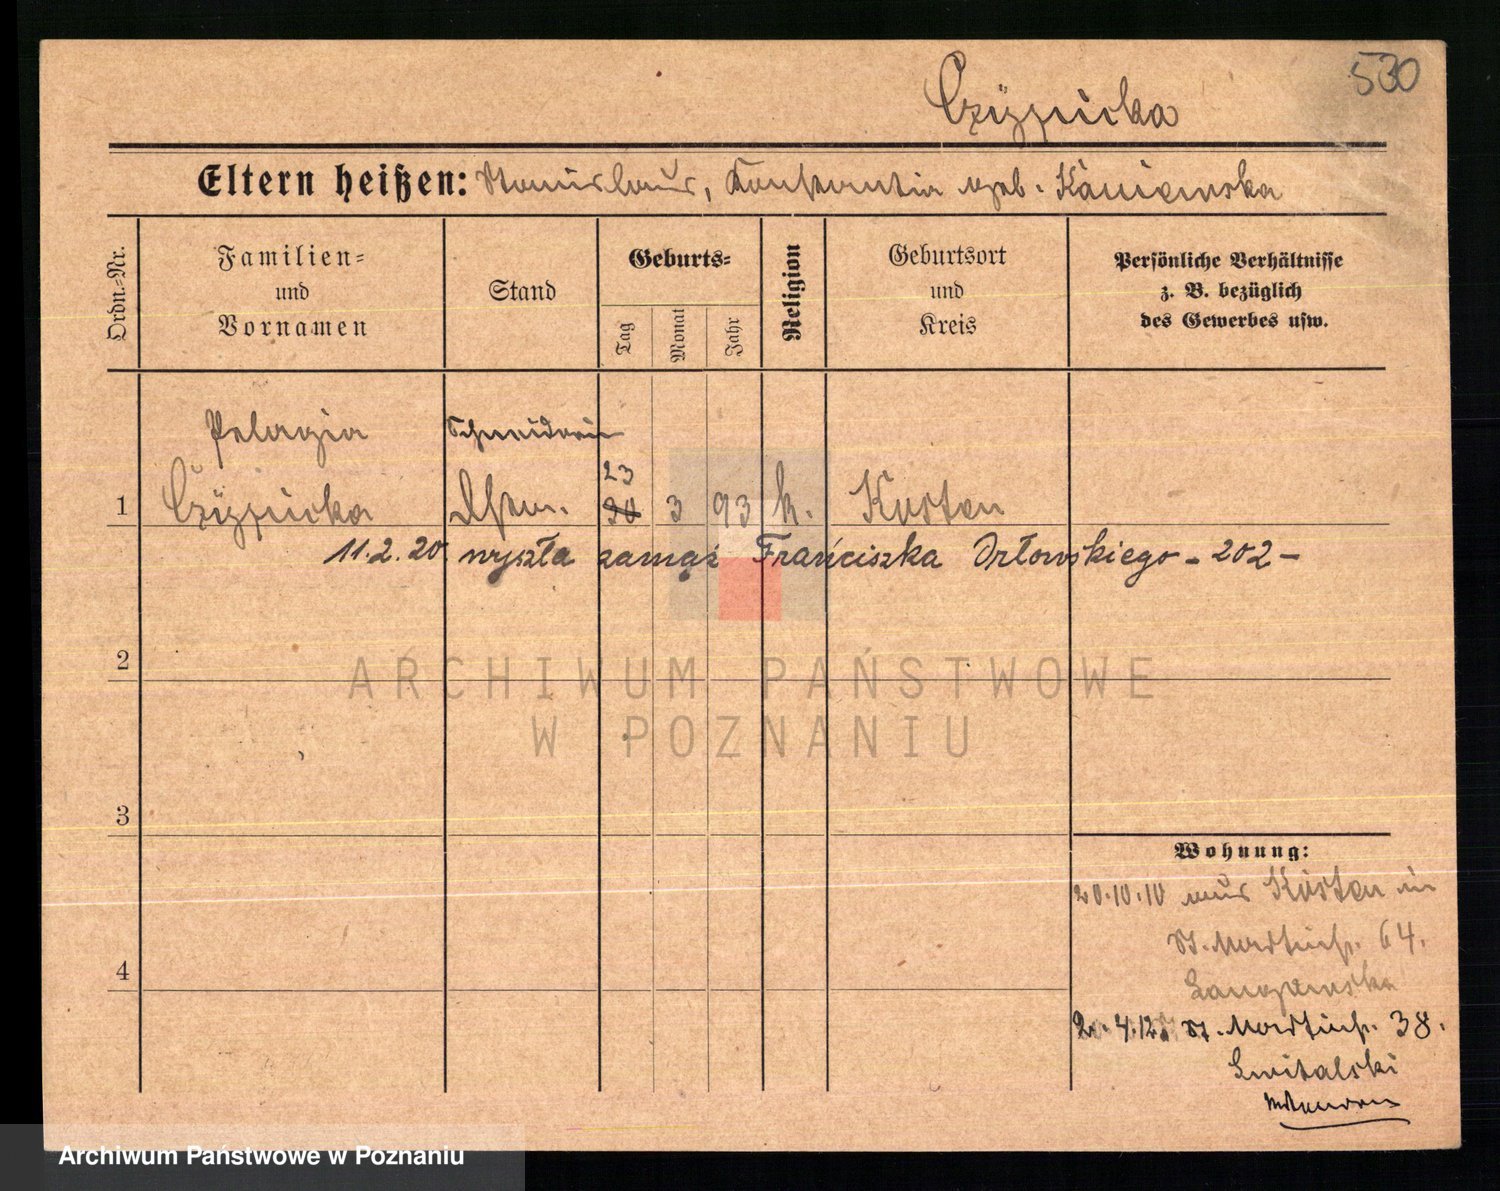 530
Eltern heißen: Stanislaus, Konstantia geb. Kaniewska
Ordn.-Nr.
Familien-
und
Vornamen
Stand
Geburts-
Tag
Monat
Jahr
Religion
Geburtsort
und
Kreis
Persönliche Verhältnisse
z. B. bezüglich
des Gewerbes usw.
Pelagia
Schneiderin
23
1
30 3 93 k. Kosten
11.2.20 wyszła zamąż Franciszka Orłowskiego - 202 -
2
ARCHIWUM PAŃSTWOWE
W POZNANIU
3
Wohnung:
20.10.10 aus Kosten in
St. Martinstr. 64.
4
St. Martinstr. 38.
Archiwum Państwowe w Poznaniu